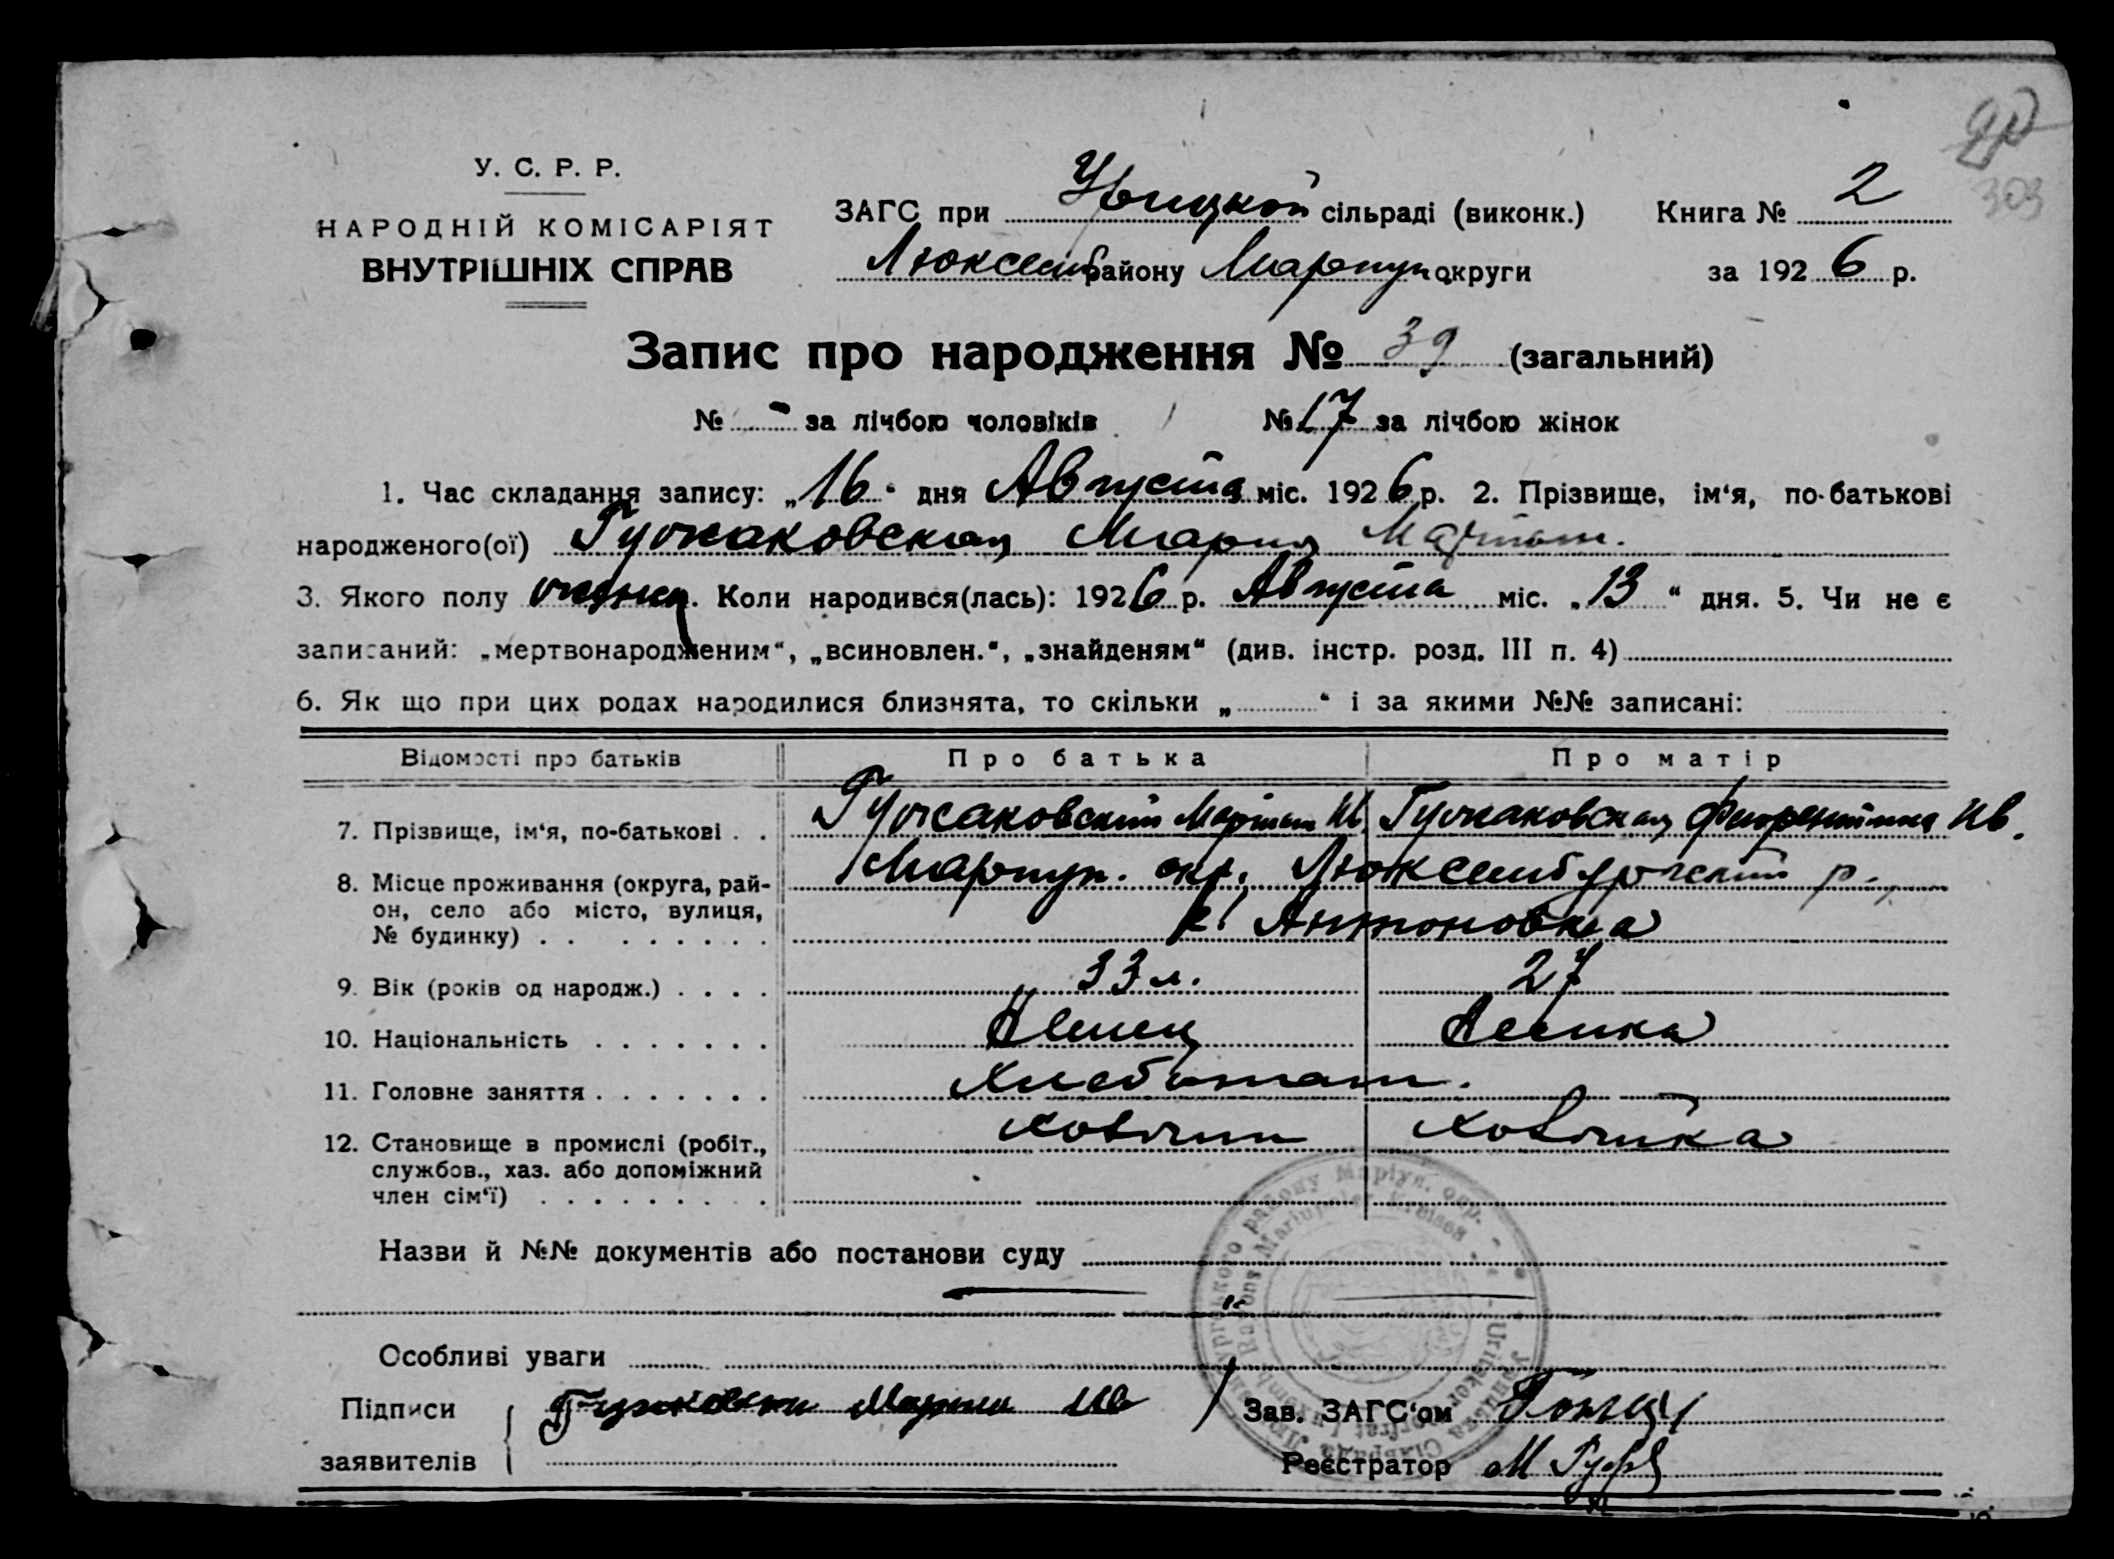 90
303
У. С. Р. Р.
НАРОДНІЙ КОМІСАРІЯТ
ВНУТРІШНІХ СПРАВ
ЗАГС при сільраді (виконк.) Книга № 2
Люксемб району Мариуп округи за 1926 р.
Запис про народження № 39 (загальний)
№ - за лічбою чоловіків № 17 за лічбою жінок
1. Час складання запису: „16“ дня Августа міс. 1926 р. 2. Прізвище, ім‘я, по-батькові
народженого(ої) Гучжаковская Мария Мартин.
3. Якого полу . Коли народився(лась): 1926 р. Августа міс. „13“ дня. 5. Чи не є
записаний: „мертвонародженим“, „всиновлен.“, „знайденям“ (див. інстр. розд. III п. 4)
6. Як що при цих родах народилися близнята, то скільки „ “ і за якими №№ записані:
Відомості про батьків Про батька Про матір
7. Прізвище, ім‘я, по-батькові . . Мартин Ив. Ив.
8. Місце проживання (округа, рай- Мариуп. окр. Люксембургский р.,
он, село або місто, вулиця, к. Антоновка
№ будинку) . . . . . . . .
9. Вік (років од народж.) . . . . 33 л. 27
10. Національність . . . . . . . Немец Немка
11. Головне заняття . . . . . . . Хлебопаш.
12. Становище в промислі (робіт., хозяин хозяйка
службов., хаз. або допоміжний
член сім‘ї) . . . . . . . . .
Назви й №№ документів або постанови суду
Особливі уваги
Підписи Мартин Ив Зав. ЗАГС‘ом
заявителів Реєстратор М